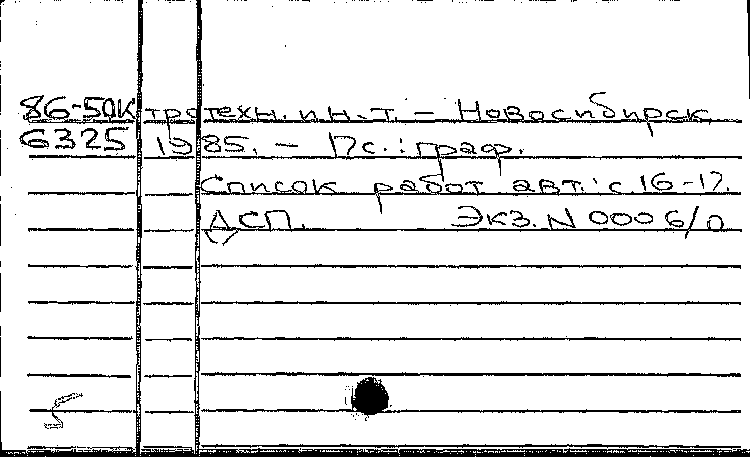 86-50К тротехн. ин-т. - Новосибирск,
6325 1985. - 17с.: граф.
Список работ авт.: с.16-17.
ДСП. Экз. N 0006/0
5